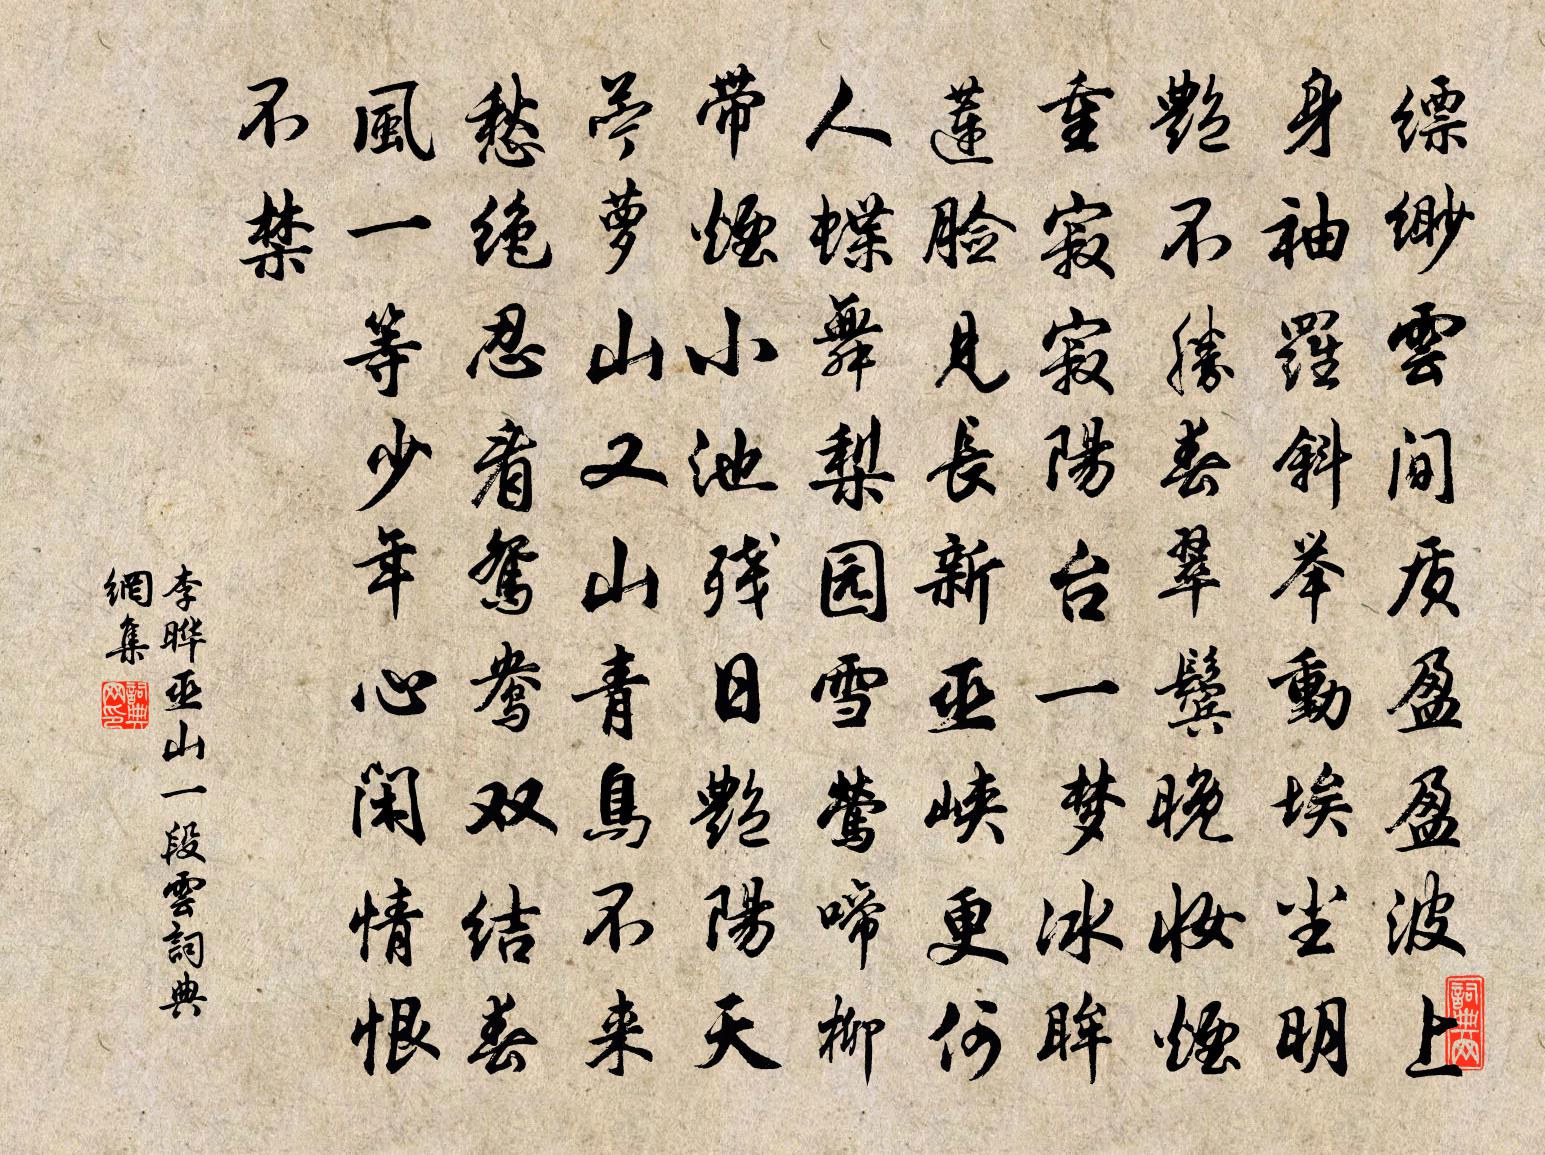 缥缈雲间质盈盈波上
身袖羅斜举動埃尘明
艷不勝春翠鬓晚妆煙
重寂寂陽台一梦冰眸
蓮脸见長新巫峡更何
人蝶舞梨园雪莺啼柳
带煙小池残日艷陽天
苎萝山又山青鳥不来
愁绝忍看鸳鸯双结春
風一等少年心闲情恨
不禁
李晔巫山一段雲詞典
網集
詞典网印
詞典网